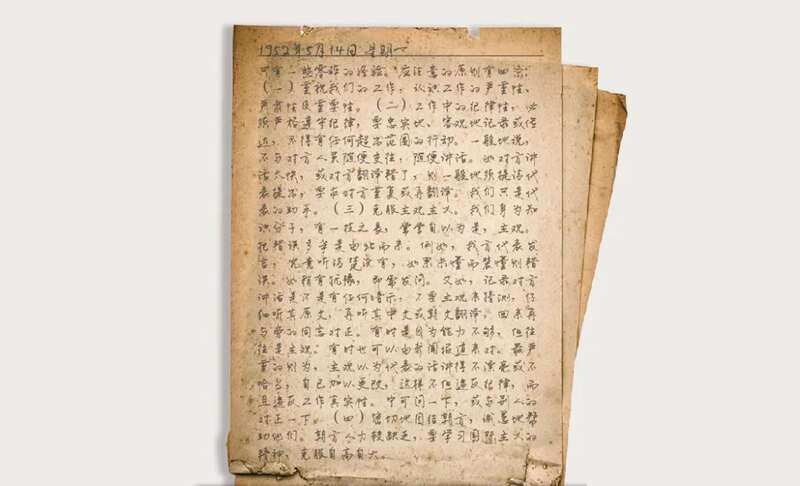 1952年5月14日 星期一
可有一些零碎的经验。应注意的原则有四点:
(一)重视我们的工作,认识工作的严重性、
严肃性及重要性。(二)工作中的纪律性,必
须严格遵守纪律,要忠实地、客观地记录或传
达,不得有任何超出范围的行动。一般地说,
不与对方人员随便交往,随便讲话。如对方讲
话太快,或对方翻译错了,则一般地须提请代
表提出,要求对方重复或再翻译。我们只是代
表的助手。(三)克服主观主义。我们身为知
识分子,有一技之长,常常自以为是,主观。
犯错误多半是由此而来。例如,我方代表发
言,究竟听清楚没有,如果未懂而装懂则错
误。如稍有犹豫,即需发问。又如,记录对方
讲话是不是有任何暗示,不要主观来猜测,仔
细听其原文,再听其中文或朝文翻译。回来再
与旁的同志对正。有时是我为能力不够,但往
往是主观。有时也可以由新闻报道来对。最严
重的则为,主观以为代表的话讲得不漂亮或不
恰当,自己加以更改,这样不但违反纪律,而
且违反工作真实性。宁可问一下,或与别人的
对正一下。(四)密切地团结朝方,诚恳地帮
助他们。朝方人力较缺乏,要学习国际主义的
精神,克服自高自大。